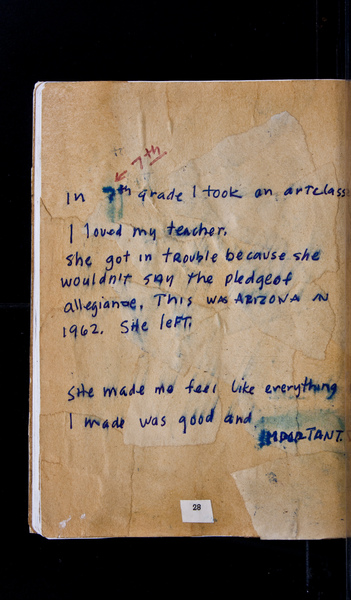 7th
In 7th grade I took an artclass
I loved my teacher.
She got in trouble because she
wouldn't say the pledge of
allegiance. This was ARIZONA IN
1962. She left.
She made me feel like everything
I made was good and
IMPORTANT.
28